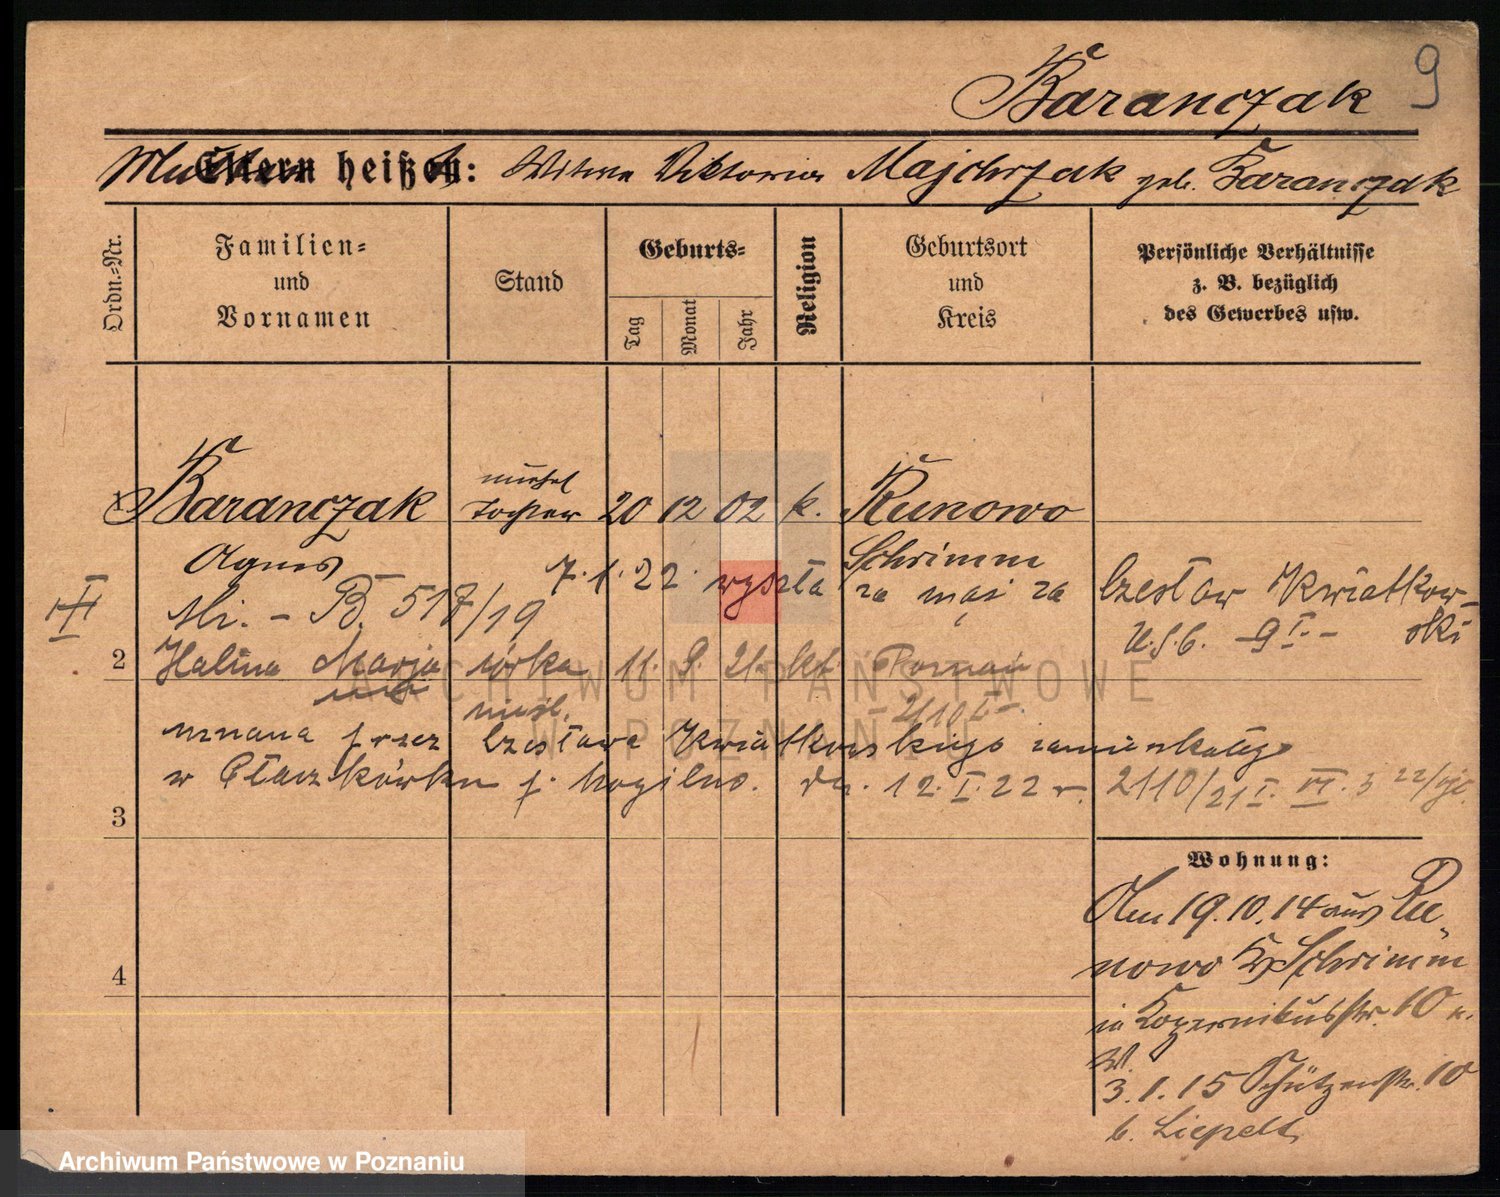 Baranczak 9
Mutter Eltern heißen: Witwe Viktoria Majchrzak geb. Baranczak
Ordn.=Nr.
Familien= und Vornamen
Stand
Geburts=
Tag
Monat
Jahr
Religion
Geburtsort und Kreis
Persönliche Verhältnisse z. B. bezüglich des Gewerbes usw.
1 Baranczak Tochter 20 12 02 k. Runowo
Agnes Schrimm
7. 1. 22 wyszła za mąż za Czesław Kwiatkow-
ski
U.S.C. 9 I.
B. 517/19
III
2 Halina Marja córka 11. 9. 21 kt. Poznań
nieśl. 2110 I
uznana przez Czesława Kwiatkowskiego zamieszkałego
w p. Mogilno. dn. 12. I. 22 r. 2110/21 I. VI. 3 22/
3
Wohnung:
Am 19.10.14 aus Ru-
nowo Kr. Schrimm
in Kopernikusstr. 10
4
3.1.15 Schützenstr. 10
b. Liepelt
ARCHIWUM PAŃSTWOWE
W POZNANIU
Archiwum Państwowe w Poznaniu